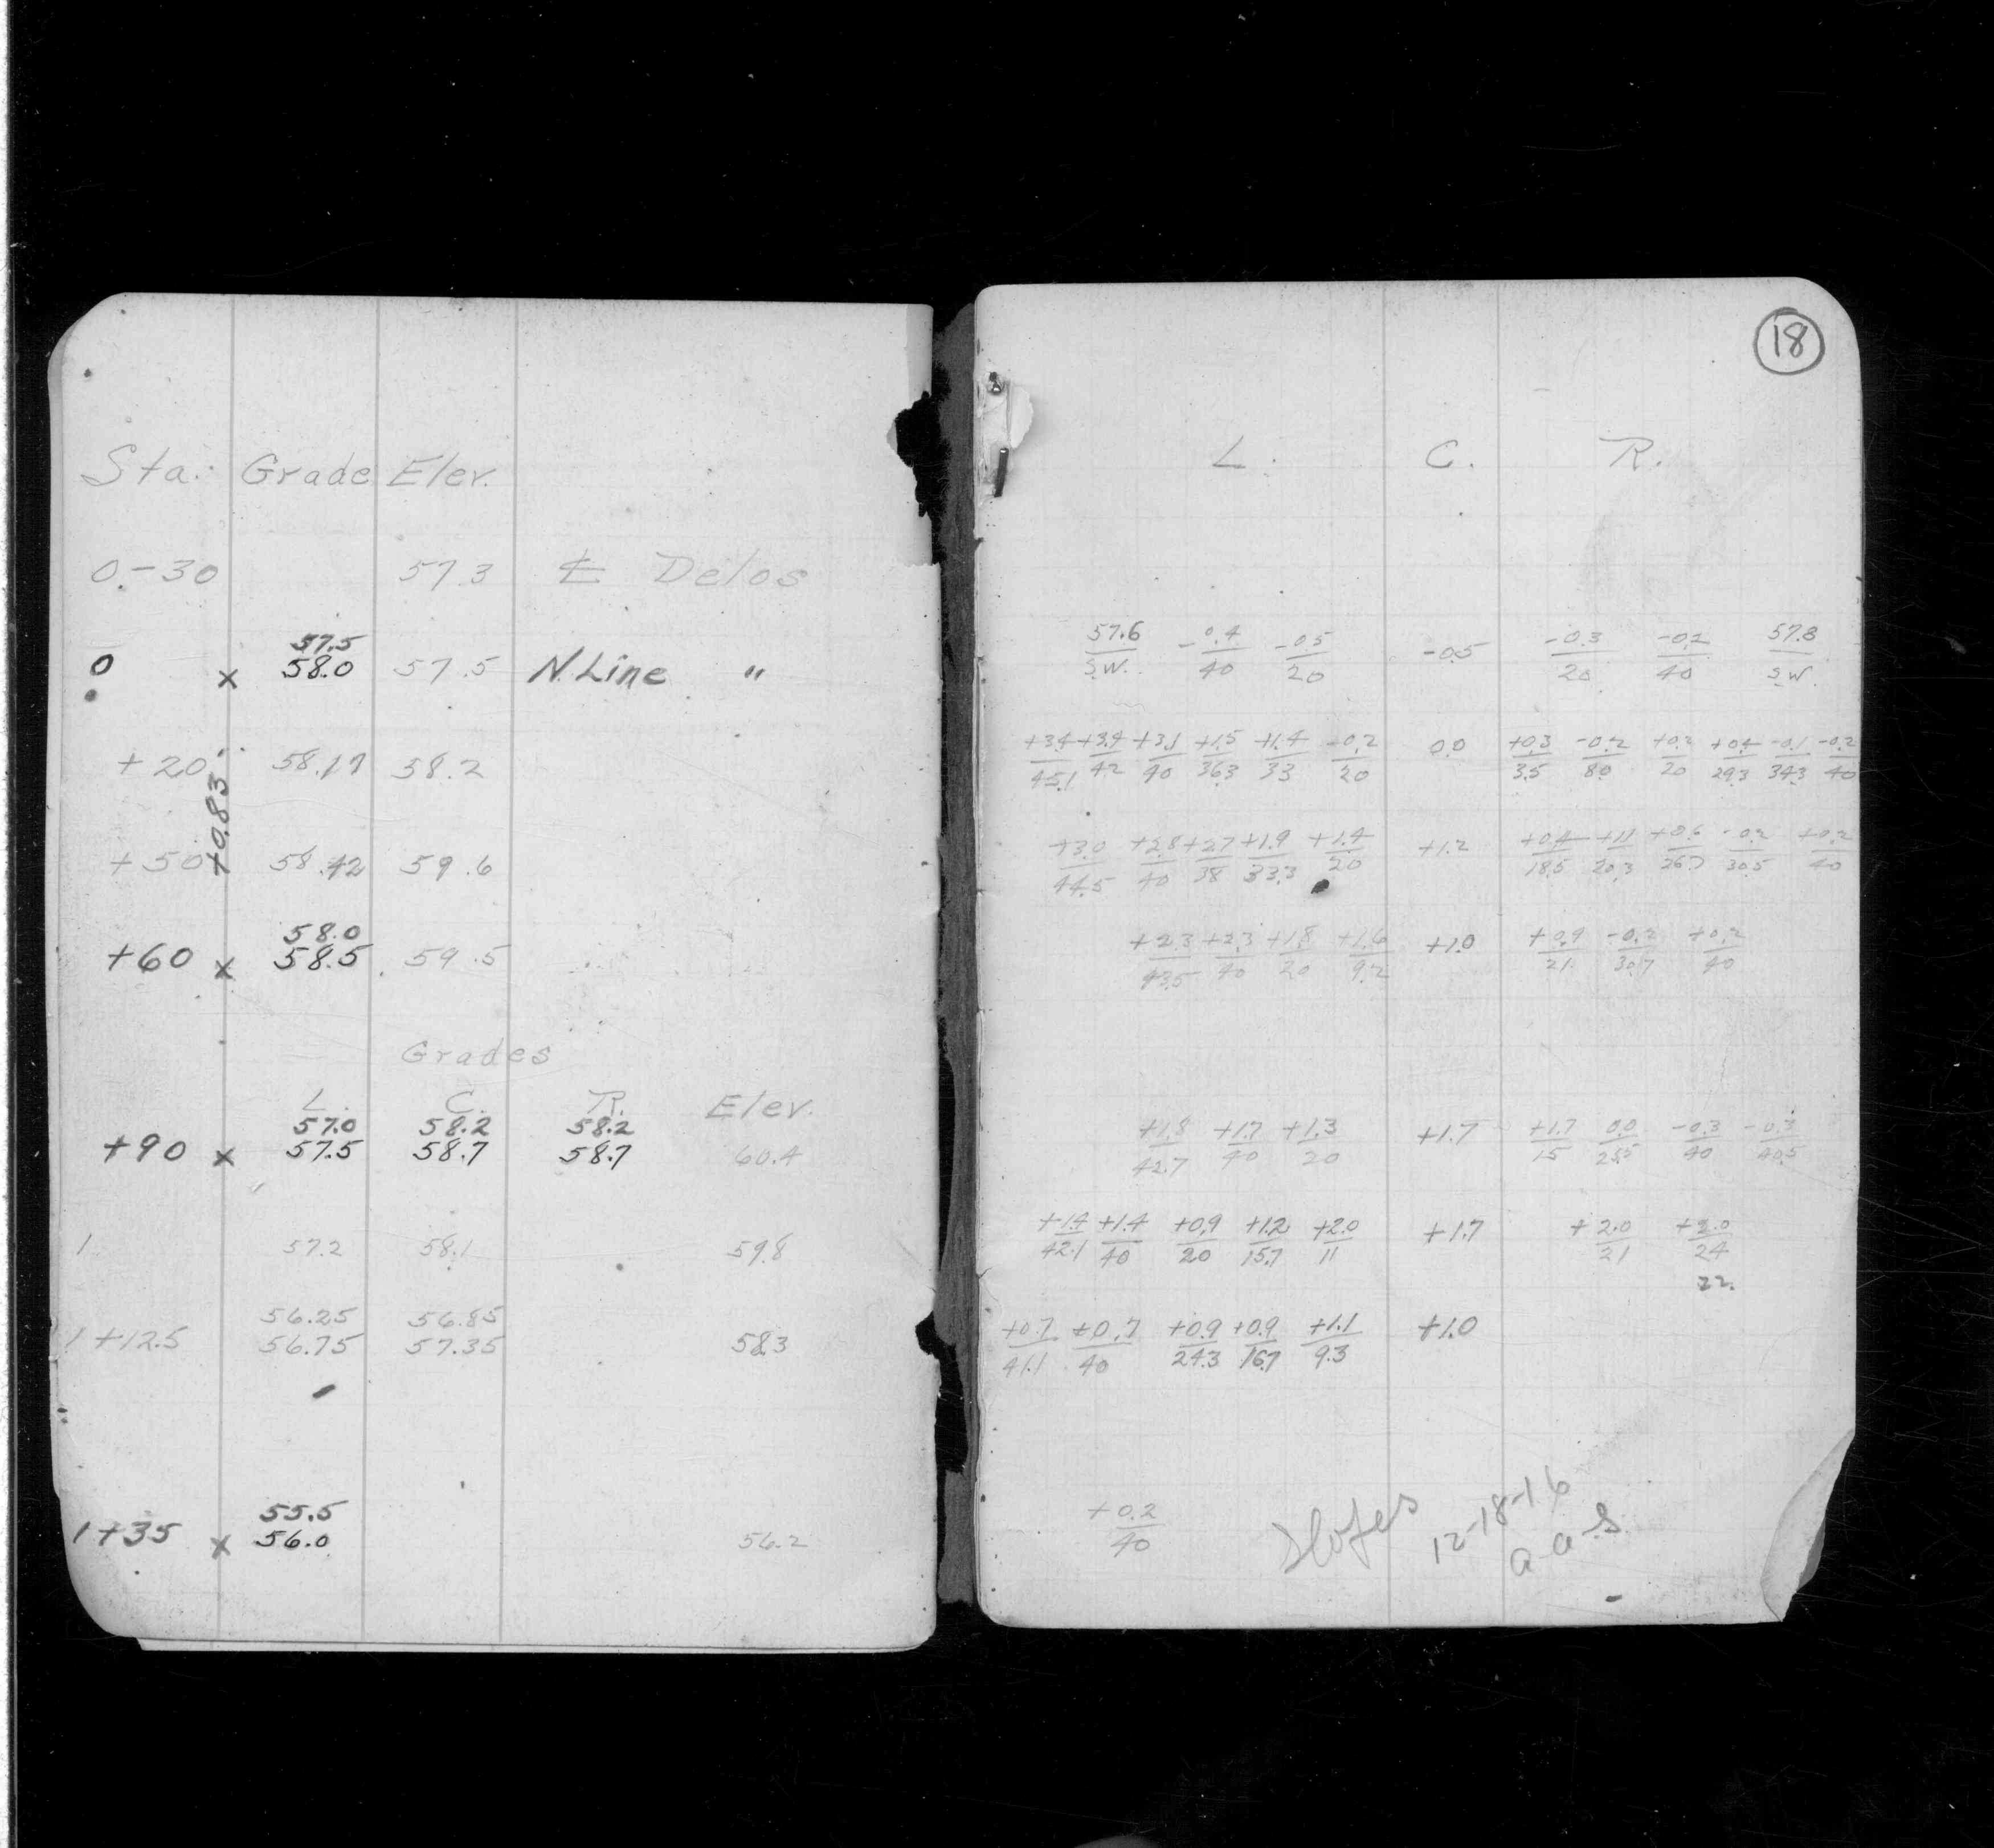 Sta. Grade Elev.
0-30 57.3 ℄ Delos
57.5
0 x 58.0 57.5 N. Line "
+20 58.17 58.2
+0.83
+50 58.42 59.6
58.0
+60 x 58.5 59.5
Grades
L. C. R. Elev.
57.0 58.2 58.2
+90 x 57.5 58.7 58.7 60.4
1 57.2 58.1 59.8
56.25 56.85
1+12.5 56.75 57.35 58.3
55.5
1+35 x 56.0 56.2
18
L. C. R.
57.6 -0.4 -0.5 -0.5 -0.3 -0.2 57.8
S.W. 40 20 20 40 S.W.
+3.4 +3.4 +3.1 +1.5 +1.4 -0.2 0.0 +0.3 -0.2 +0.2 +0.4 -0.1 -0.2
45.1 42 40 36.3 33 20 3.5 8.0 20 29.3 34.3 40
+3.0 +2.8 +2.7 +1.9 +1.4 +1.2 +0.4 +1.1 +0.6 -0.2 +0.2
44.5 40 38 33.3 20 18.5 20.3 26.7 30.5 40
+2.3 +2.3 +1.8 +1.6 +1.0 +0.9 -0.2 +0.2
43.5 40 20 9.2 21 30.7 40
+1.8 +1.7 +1.3 +1.7 +1.7 0.0 -0.3 -0.3
42.7 40 20 15 25.5 40 40.5
+1.4 +1.4 +0.9 +1.2 +2.0 +1.7 +2.0 +2.0
42.1 40 20 15.7 11 21 24
22.
+0.7 +0.7 +0.9 +0.9 +1.1 +1.0
41.1 40 24.3 16.7 9.3
+0.2
40
12-18-16
a-a-S.